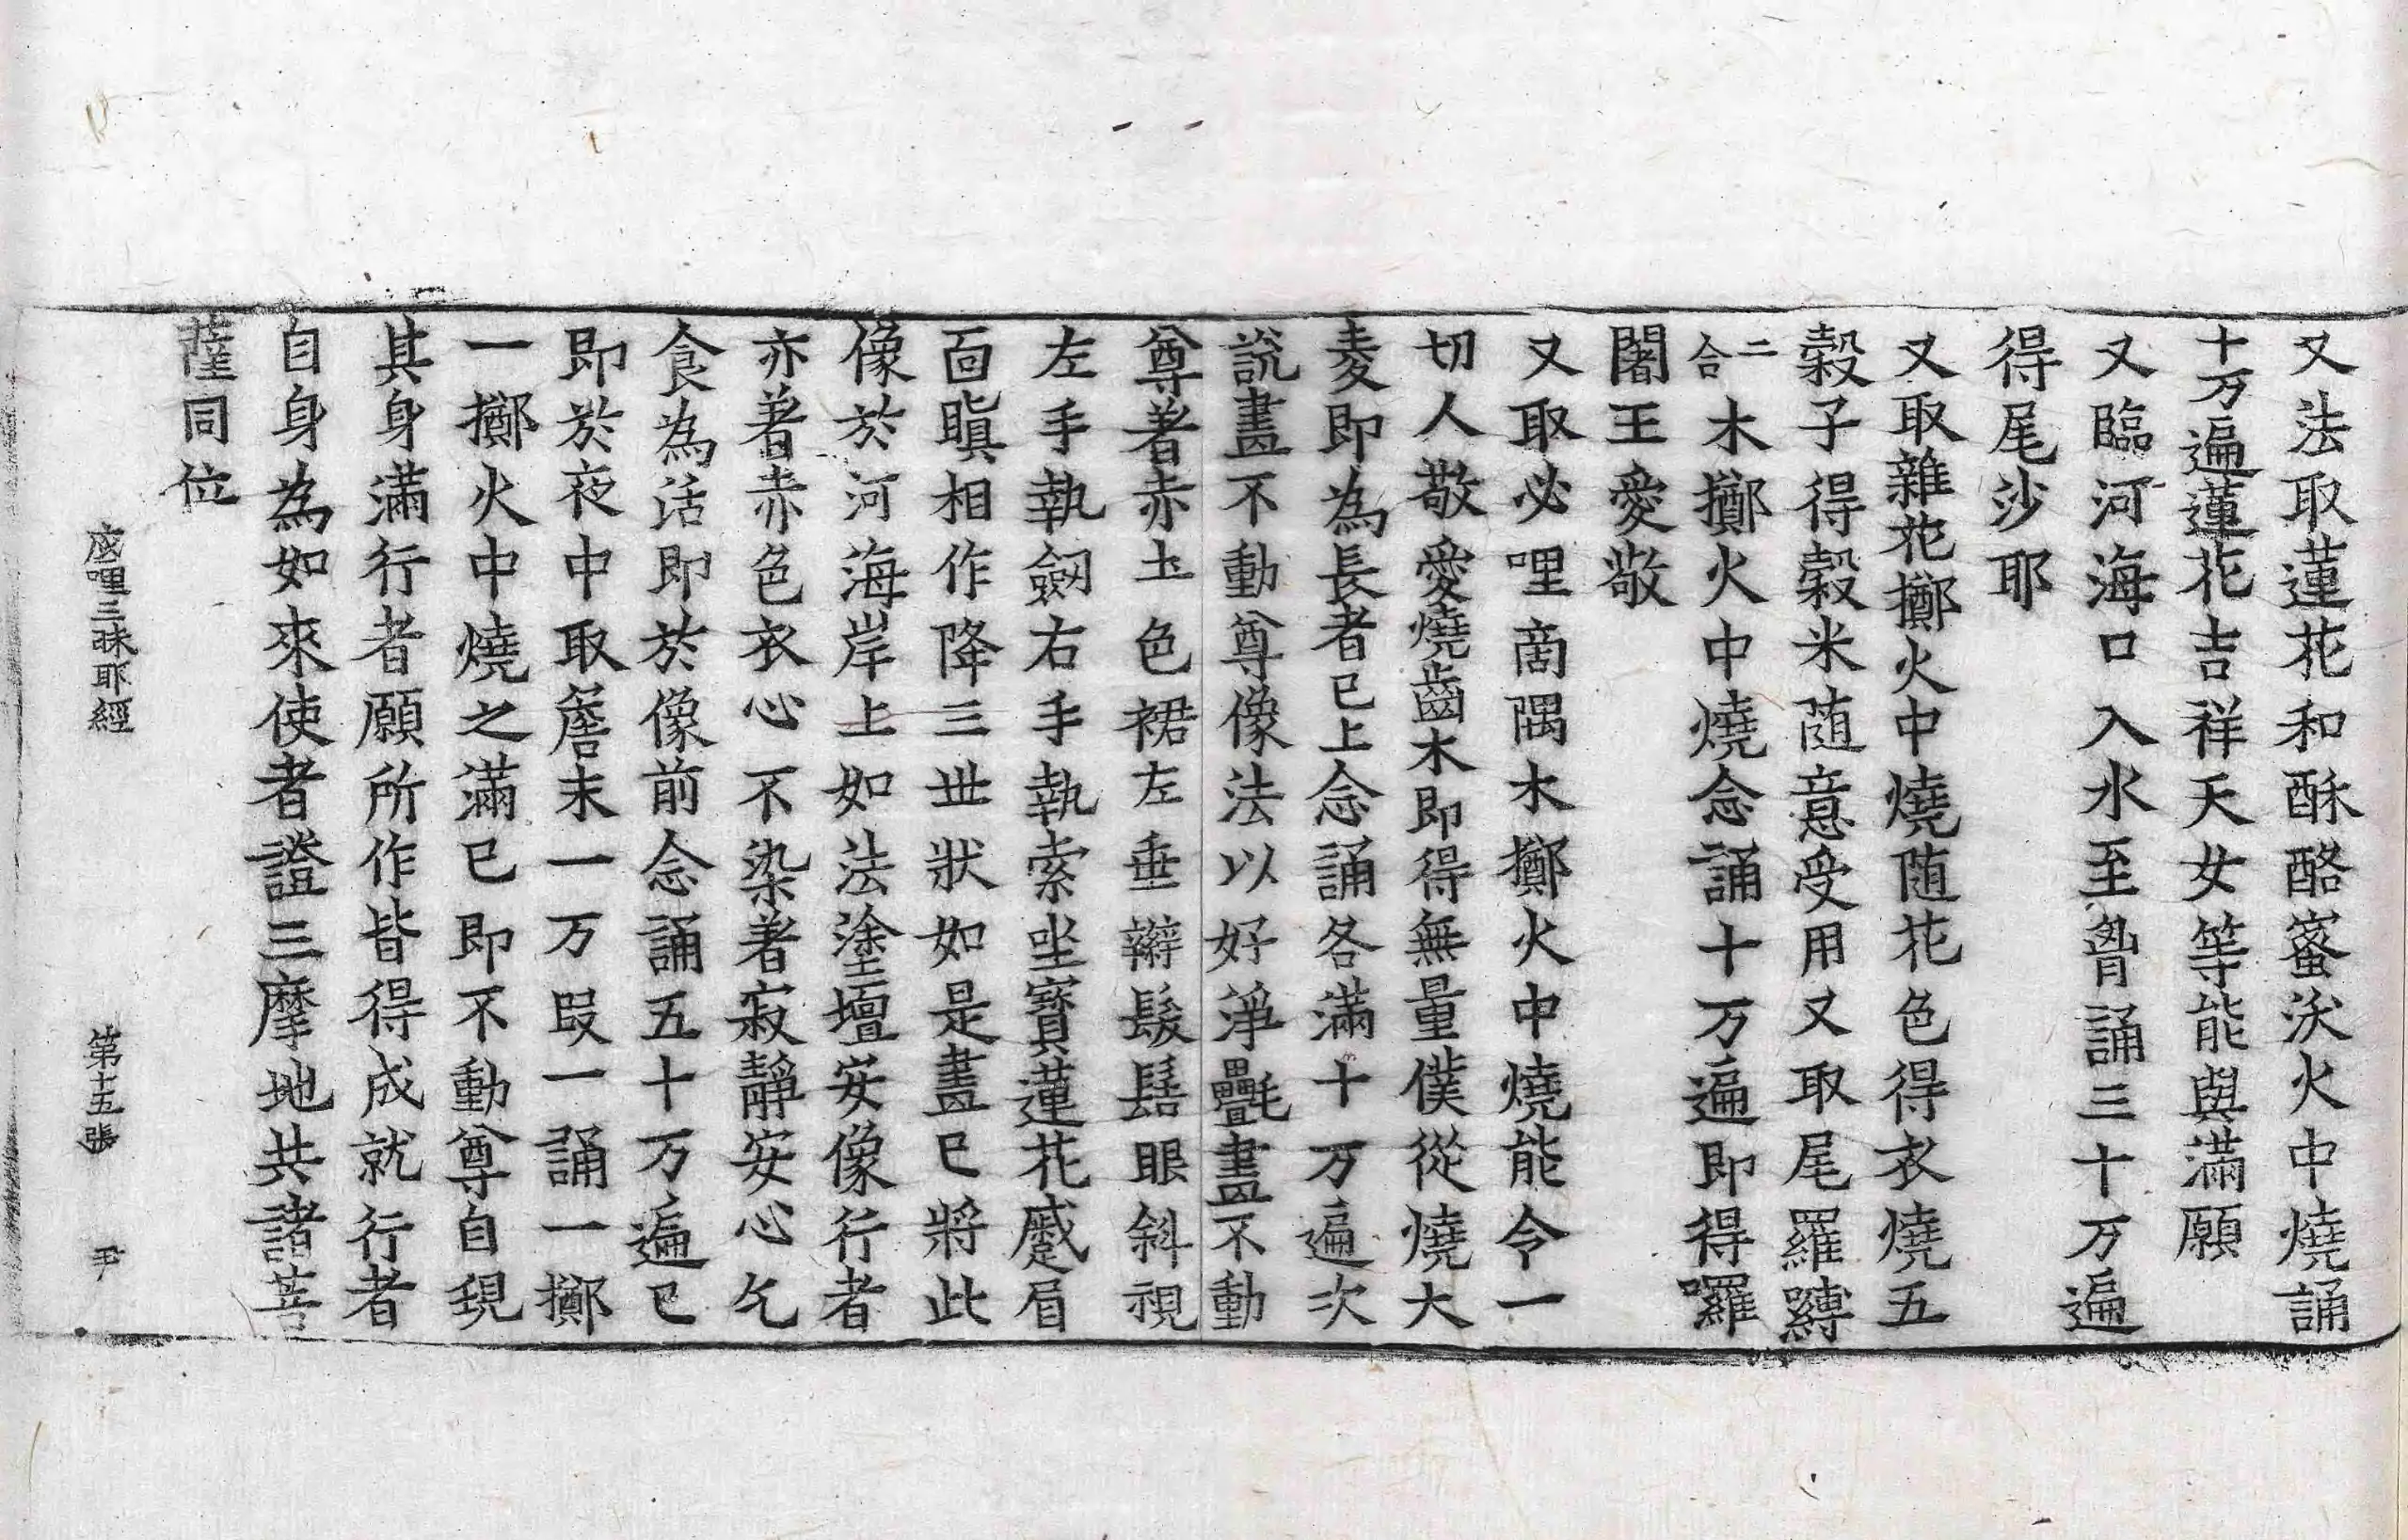 又法取蓮花和酥酪蜜沃火中燒誦
十万遍蓮花吉祥天女等能與滿願
又臨河海口入水至胷誦三十万遍
得尾沙耶
又取雜花擲火中燒随花色得衣燒五
穀子得穀米随意受用又取尾羅嚩
二合木擲火中燒念誦十万遍即得囉
闍王愛敬
又取必哩啇隅木擲火中燒能令一
切人敬愛燒齒木即得無量僕從燒大
麦即為長者已上念誦各滿十万遍次
說畫不動尊像法以好淨㲲畫不動
尊著赤土色裙左垂辮髮髻眼斜視
左手執劔右手執索坐寳蓮花蹙眉
面瞋相作降三世狀如是畫已將此
像於河海岸上如法塗壇安像行者
亦著赤色衣心不染著寂靜安心乞
食為活即於像前念誦五十万遍已
即於夜中取詹末一万叚一誦一擲
一擲火中燒之滿已即不動尊自現
其身滿行者願所作皆得成就行者
自身為如來使者證三摩地共諸菩
薩同位
底哩三昧耶經 第十五張